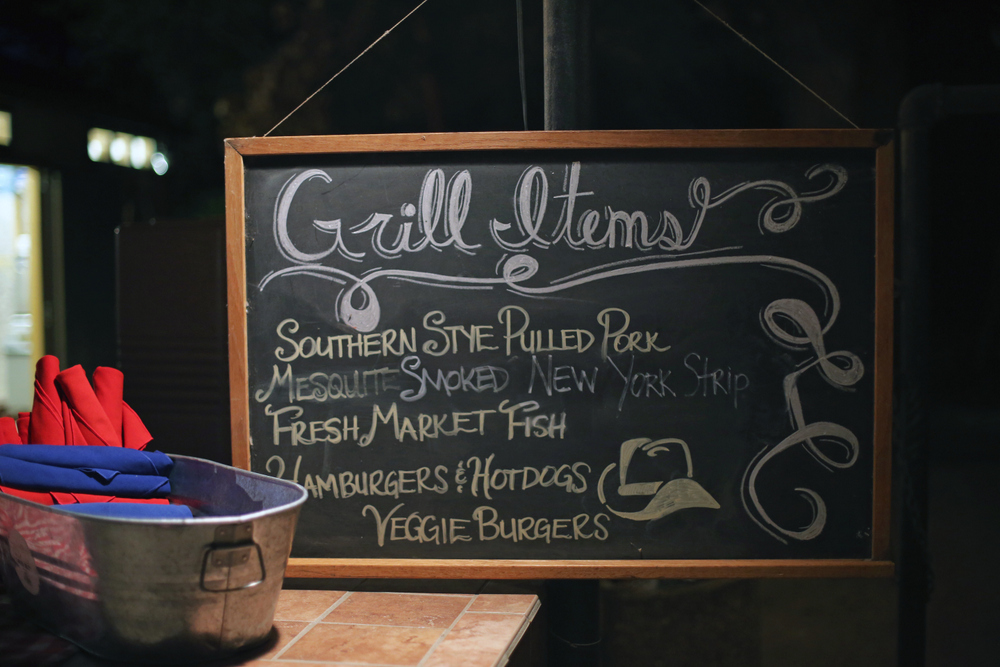 Grill Items
Southern Stye Pulled Pork
Mesquite Smoked New York Strip
Fresh Market Fish
Hamburgers & Hotdogs
Veggie Burgers